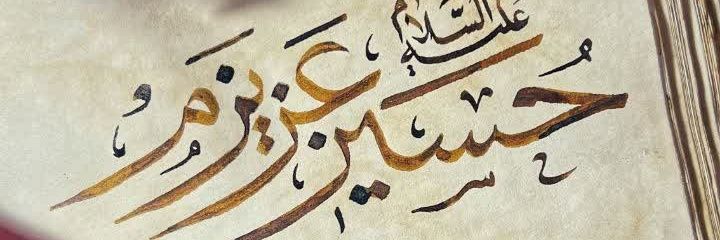 حسین عزیزم
علیه السلام